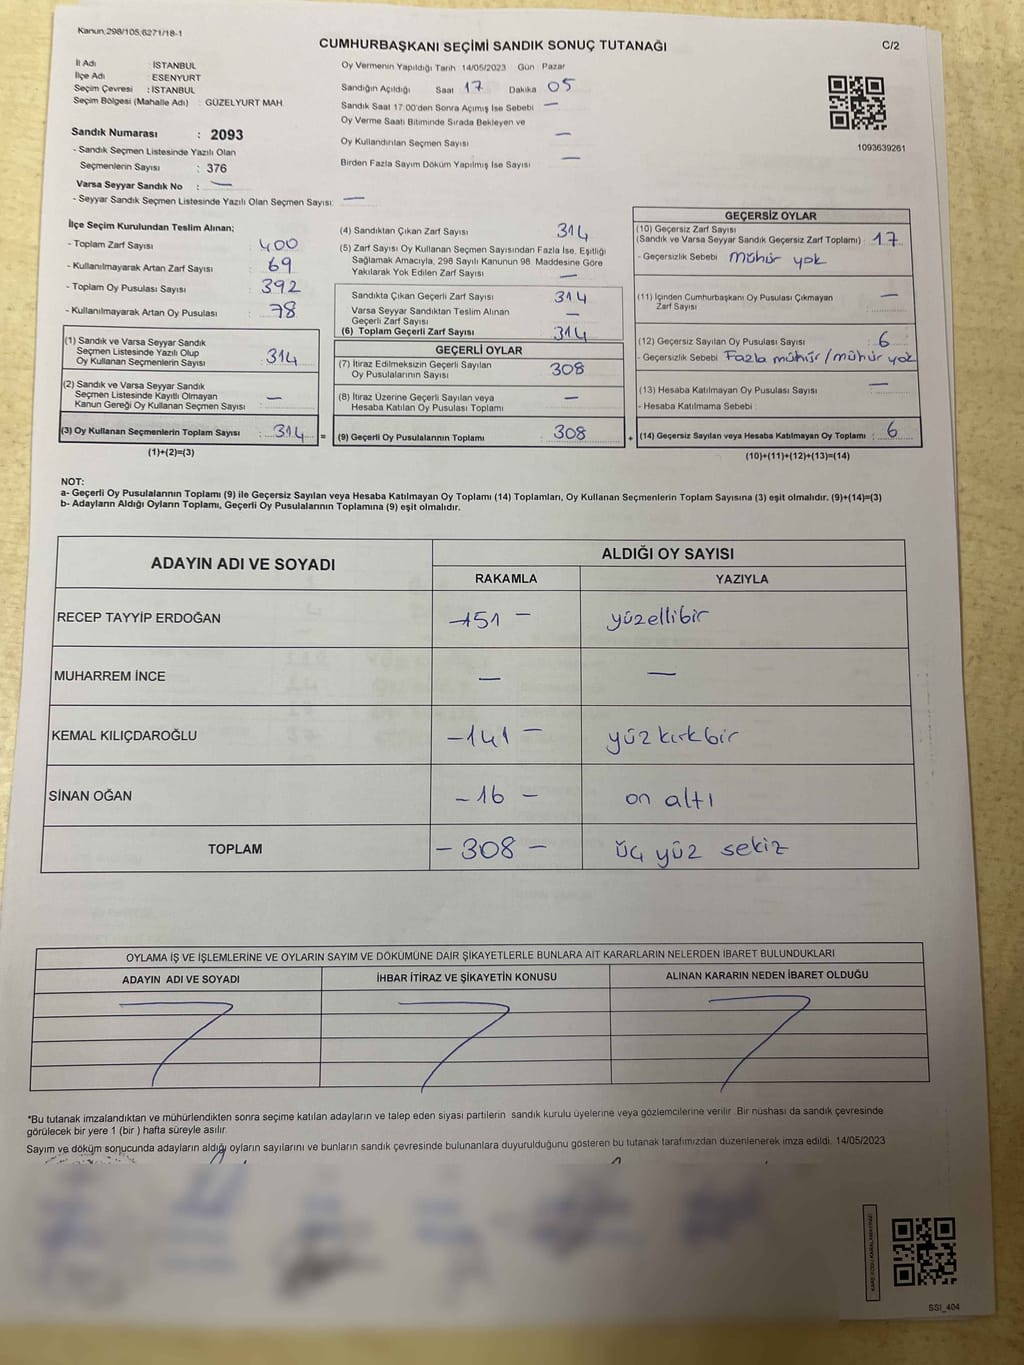 Kanun;298/105;6271/18-1
CUMHURBAŞKANI SEÇİMİ SANDIK SONUÇ TUTANAĞI
C/2
İl Adı : İSTANBUL
İlçe Adı : ESENYURT
Seçim Çevresi : İSTANBUL
Seçim Bölgesi (Mahalle Adı) : GÜZELYURT MAH.
Sandık Numarası : 2093
- Sandık Seçmen Listesinde Yazılı Olan
Seçmenlerin Sayısı : 376
Varsa Seyyar Sandık No : —
- Seyyar Sandık Seçmen Listesinde Yazılı Olan Seçmen Sayısı: —
Oy Vermenin Yapıldığı Tarih :14/05/2023 Gün : Pazar
Sandığın Açıldığı Saat 17 Dakika 05
Sandık Saat 17:00'den Sonra Açımış İse Sebebi —
Oy Verme Saati Bitiminde Sırada Bekleyen ve
Oy Kullandırılan Seçmen Sayısı —
Birden Fazla Sayım Döküm Yapılmış İse Sayısı —
1093639261
İlçe Seçim Kurulundan Teslim Alınan;
- Toplam Zarf Sayısı : 400
- Kullanılmayarak Artan Zarf Sayısı : 69
- Toplam Oy Pusulası Sayısı : 392
- Kullanılmayarak Artan Oy Pusulası : 78
(1) Sandık ve Varsa Seyyar Sandık
Seçmen Listesinde Yazılı Olup
Oy Kullanan Seçmenlerin Sayısı : 314
(2) Sandık ve Varsa Seyyar Sandık
Seçmen Listesinde Kayıtlı Olmayan
Kanun Gereği Oy Kullanan Seçmen Sayısı : —
(3) Oy Kullanan Seçmenlerin Toplam Sayısı : 314 =
(1)+(2)=(3)
(4) Sandıktan Çıkan Zarf Sayısı 314
(5) Zarf Sayısı Oy Kullanan Seçmen Sayısından Fazla İse, Eşitliği
Sağlamak Amacıyla, 298 Sayılı Kanunun 98. Maddesine Göre
Yakılarak Yok Edilen Zarf Sayısı —
Sandıkta Çıkan Geçerli Zarf Sayısı 314
Varsa Seyyar Sandıktan Teslim Alınan
Geçerli Zarf Sayısı —
(6) Toplam Geçerli Zarf Sayısı 314
GEÇERLİ OYLAR
(7) İtiraz Edilmeksizin Geçerli Sayılan
Oy Pusulalarının Sayısı 308
(8) İtiraz Üzerine Geçerli Sayılan veya
Hesaba Katılan Oy Pusulası Toplamı —
(9) Geçerli Oy Pusulalarının Toplamı 308 +
GEÇERSİZ OYLAR
(10) Geçersiz Zarf Sayısı
(Sandık ve Varsa Seyyar Sandık Geçersiz Zarf Toplamı) : 17
- Geçersizlik Sebebi mühür yok
(11) İçinden Cumhurbaşkanı Oy Pusulası Çıkmayan —
Zarf Sayısı
(12) Geçersiz Sayılan Oy Pusulası Sayısı : 6
- Geçersizlik Sebebi Fazla mühür/mühür yok
(13) Hesaba Katılmayan Oy Pusulası Sayısı —
- Hesaba Katılmama Sebebi
(14) Geçersiz Sayılan veya Hesaba Katılmayan Oy Toplamı : 6
(10)+(11)+(12)+(13)=(14)
NOT:
a- Geçerli Oy Pusulalarının Toplamı (9) ile Geçersiz Sayılan veya Hesaba Katılmayan Oy Toplamı (14) Toplamları, Oy Kullanan Seçmenlerin Toplam Sayısına (3) eşit olmalıdır. (9)+(14)=(3)
b- Adayların Aldığı Oyların Toplamı, Geçerli Oy Pusulalarının Toplamına (9) eşit olmalıdır.
ADAYIN ADI VE SOYADI
ALDIĞI OY SAYISI
RAKAMLA YAZIYLA
RECEP TAYYİP ERDOĞAN -151 - yüzellibir
MUHARREM İNCE — —
KEMAL KILIÇDAROĞLU -141 - yüz kırkbir
SİNAN OĞAN - 16 - on altı
TOPLAM - 308 - üç yüz sekiz
OYLAMA İŞ VE İŞLEMLERİNE VE OYLARIN SAYIM VE DÖKÜMÜNE DAİR ŞİKAYETLERLE BUNLARA AİT KARARLARIN NELERDEN İBARET BULUNDUKLARI
ADAYIN ADI VE SOYADI İHBAR İTİRAZ VE ŞİKAYETİN KONUSU ALINAN KARARIN NEDEN İBARET OLDUĞU
*Bu tutanak imzalandıktan ve mühürlendikten sonra seçime katılan adayların ve talep eden siyasi partilerin sandık kurulu üyelerine veya gözlemcilerine verilir .Bir nüshası da sandık çevresinde
görülecek bir yere 1 (bir ) hafta süreyle asılır.
Sayım ve döküm sonucunda adayların aldığı oyların sayılarını ve bunların sandık çevresinde bulunanlara duyurulduğunu gösteren bu tutanak tarafımızdan düzenlenerek imza edildi. 14/05/2023
SSI_404